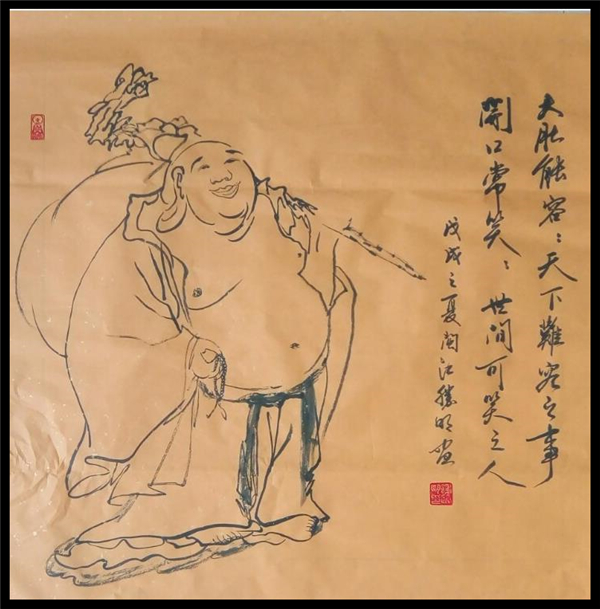 大肚能容〻天下難容之事
開口常笑〻世间可笑之人
戊戌之夏閩江勝明画